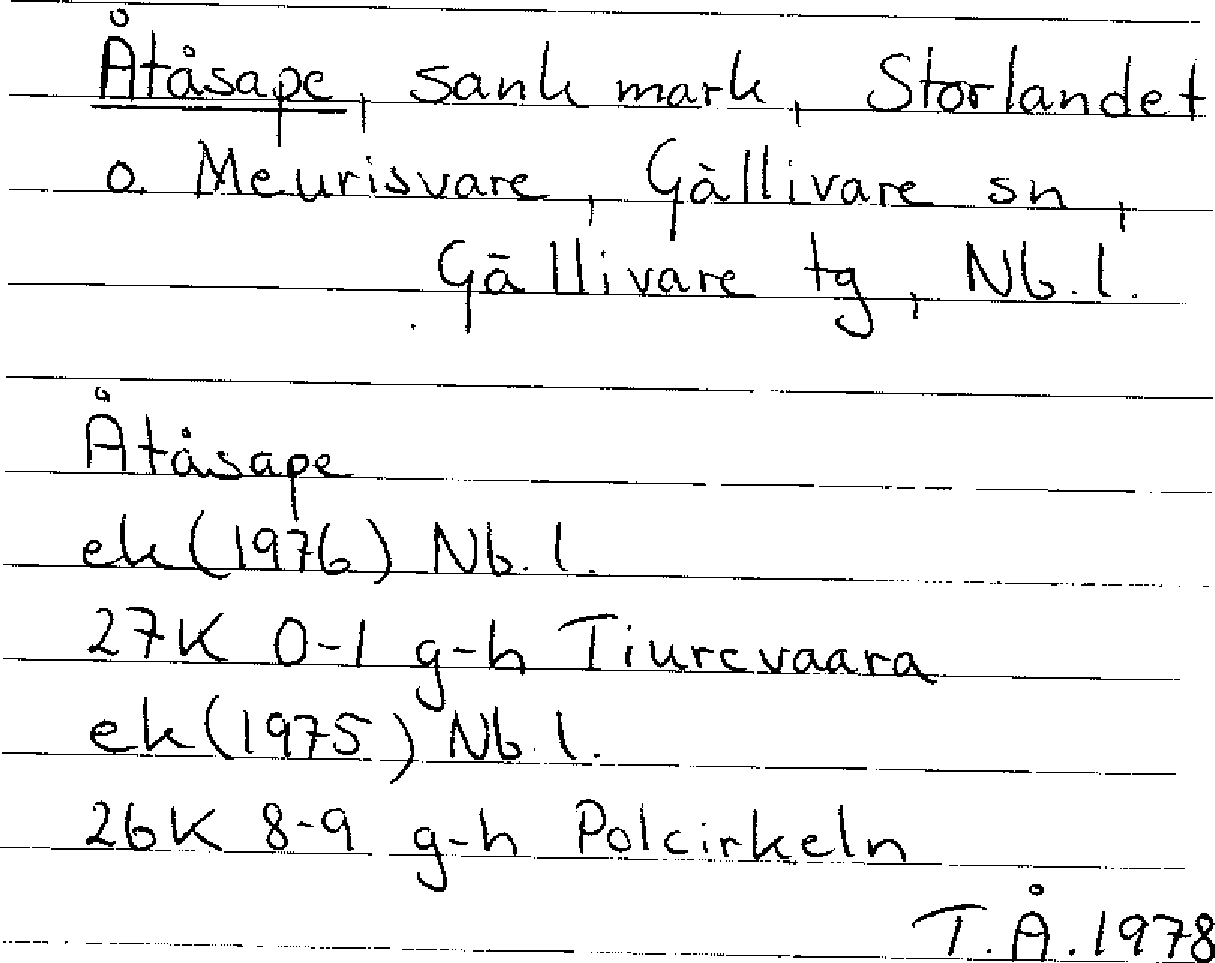 Åtåsape, sank mark, Storlandet
o. Meurisvare, Gällivare sn,
Gällivare tg, Nb.l.
Åtåsape
ek (1976) Nb.l.
27K 0-1 g-h Tiurevaara
ek (1975) Nb.l.
26K 8-9 g-h Polcirkeln
T.Å. 1978